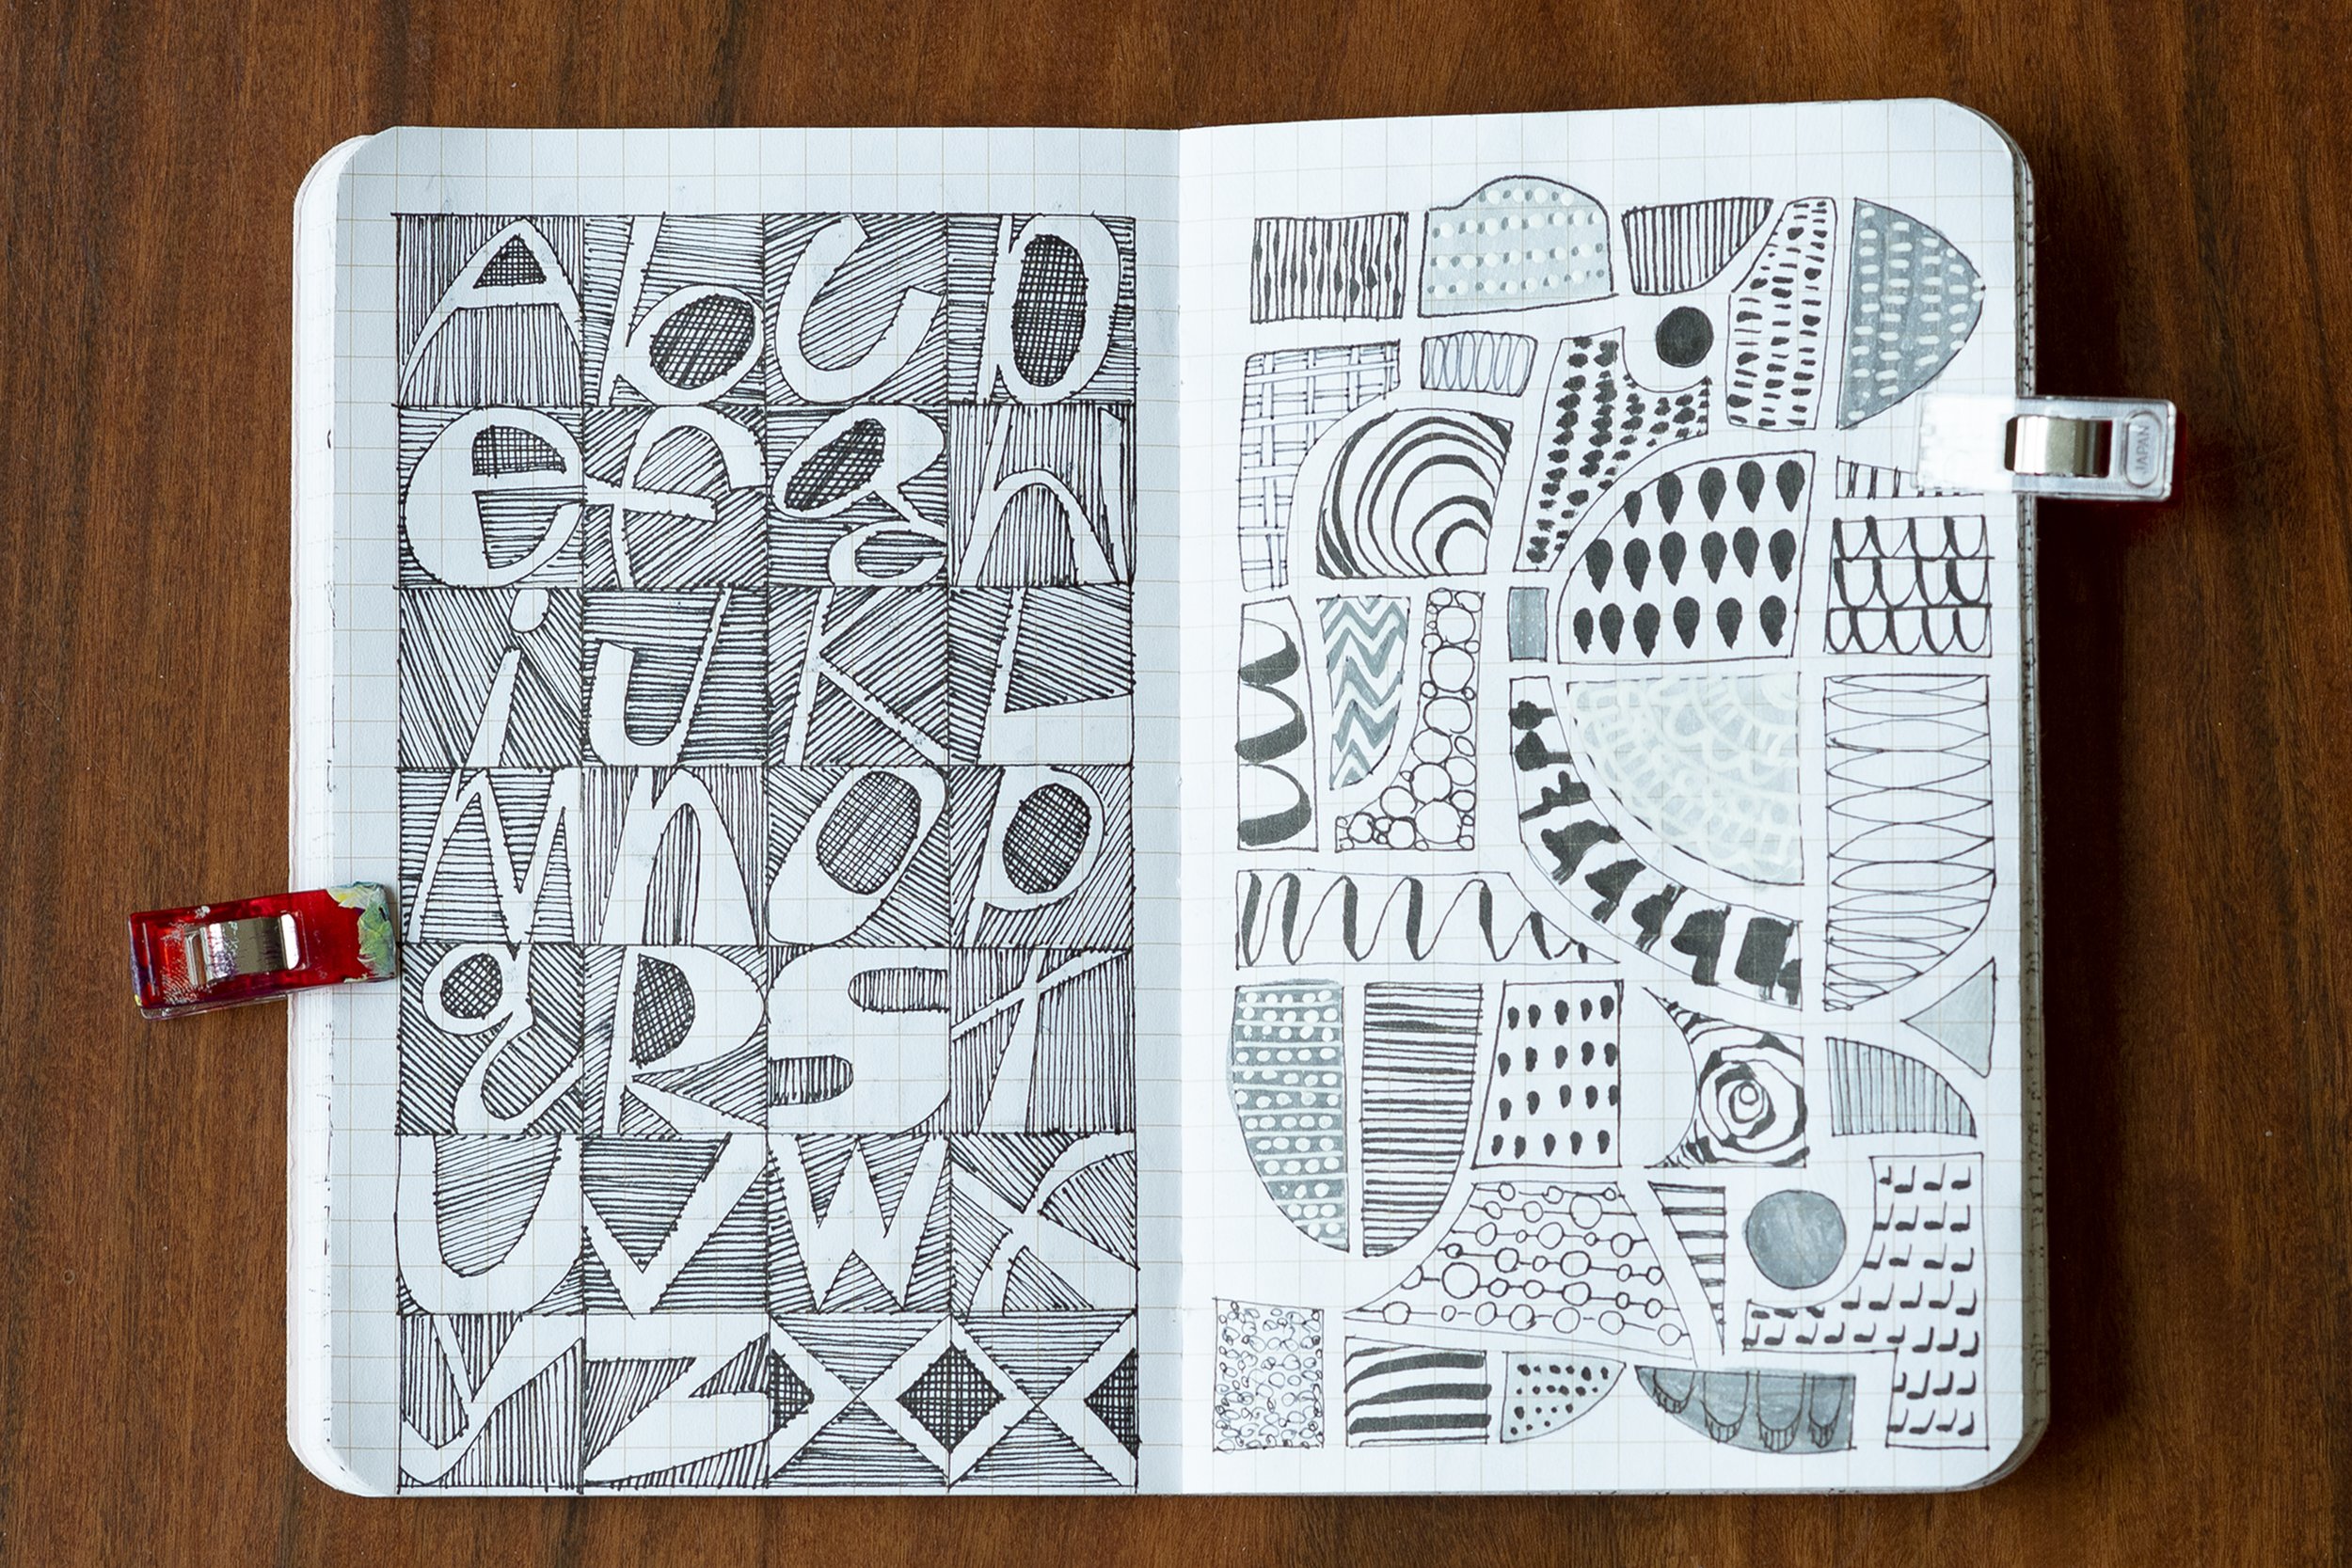 A b C D
e f g h
i J K L
M n O p
q R S t
U V W X
y Z
JAPAN